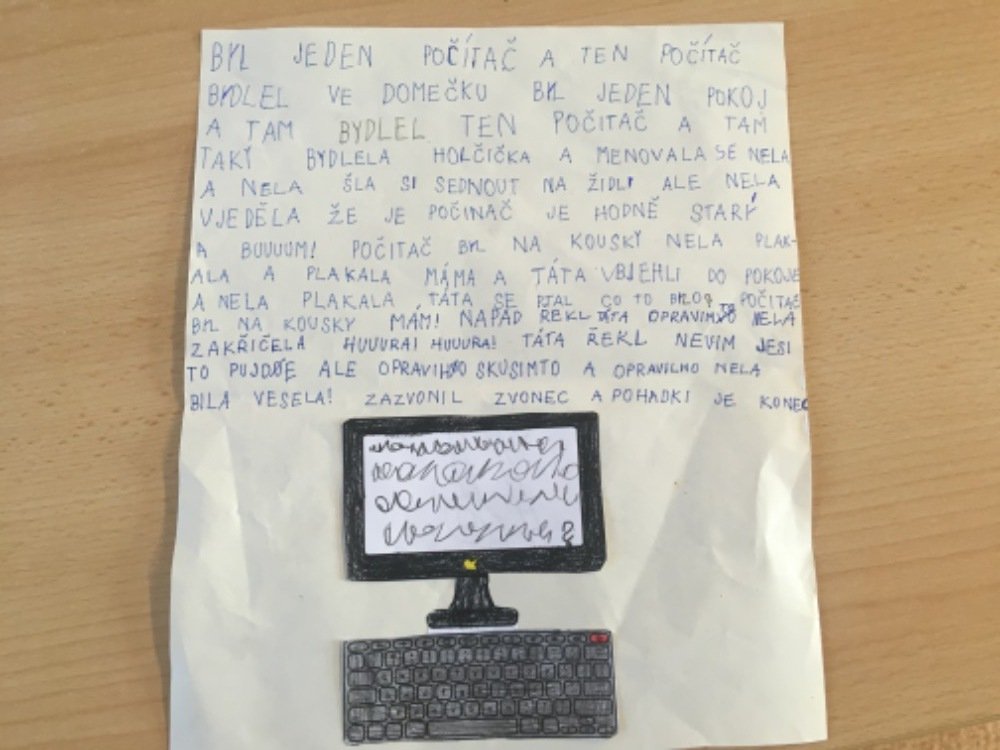 BYL JEDEN POČÍTAČ A TEN POČÍTAČ
BYDLEL VE DOMEČKU BYL JEDEN POKOJ
A TAM BYDLEL TEN POČITAČ A TAM
TAKY BYDLELA HOLČIČKA A MENOVALA SE NELA
A NELA ŠLA SI SEDNOUT NA ŽIDLI ALE NELA
VJEDĚLA ŽE JE POČINAČ JE HODNĚ STARÝ
A BUUUUM! POČITAČ BYL NA KOUSKY NELA PLAK-
ALA A PLAKALA MÁMA A TÁTA VBJEHLI DO POKOJE
A NELA PLAKALA TÁTA SE PTAL CO TO BYLO POČITAČ
BYL NA KOUSKY MÁM! NAPAD ŘEKL TÁTA OPRAVIM NELA
ZAKŘIČELA HUUURA! HUUURA! TÁTA ŘEKL NEVIM JESI
TO PUJDE ALE OPRAVIM SKUSIMTO A OPRAVILHO NELA
BILA VESELA! ZAZVONIL ZVONEC A POHADKI JE KONEC